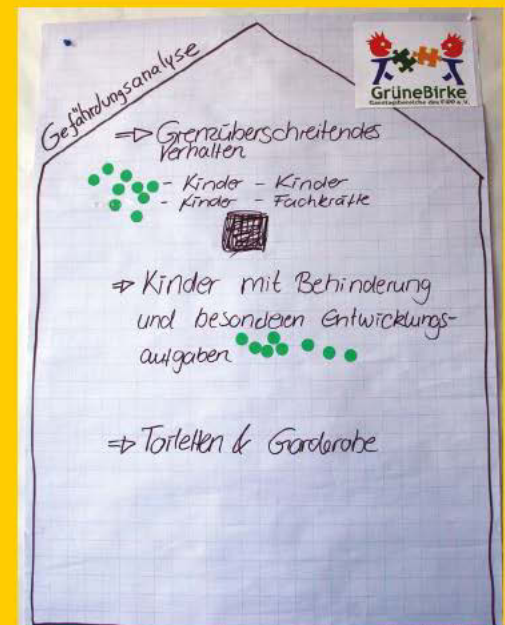 Gefährdungsanalyse
GrüneBirke
Ganztagsbereiche des FiPP e.V.
⇒ Grenzüberschreitendes
Verhalten
- Kinder - Kinder
- Kinder - Fachkräfte
⇒ Kinder mit Behinderung
und besonderen Entwicklungs-
aufgaben
⇒ Toiletten & Garderobe